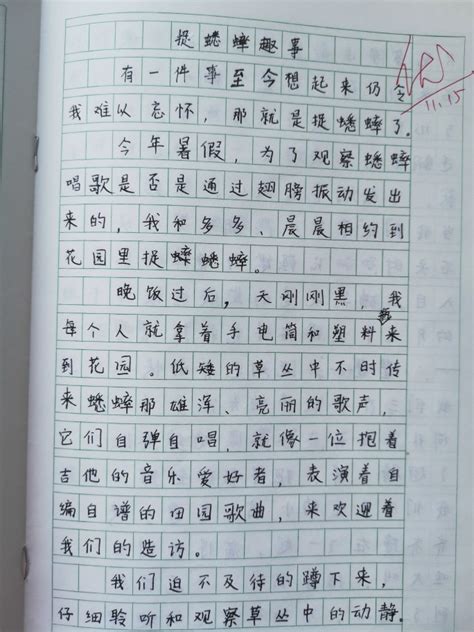 捉蟋蟀趣事
有一件事至今想起来仍令
我难以忘怀，那就是捉蟋蟀了。
今年暑假，为了观察蟋蟀
唱歌是否是通过翅膀振动发出
来的，我和多多、晨晨相约到
花园里捉蟀蟋蟀。
晚饭过后，天刚刚黑，我
每个人就拿着手电筒和塑料来
到花园。低矮的草丛中不时传
来蟋蟀那雄浑、亮丽的歌声，
它们自弹自唱，就像一位抱着
吉他的音乐爱好者，表演着自
编自谱的田园歌曲，来欢迎着
我们的造访。
我们迫不及待的蹲下来，
仔细聆听和观察草丛中的动静。
11.15